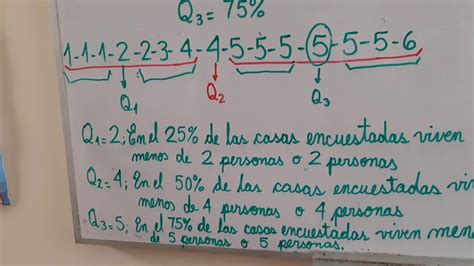 Q₃ = 75%
1-1-1-2-2-3-4-4-5-5-5-5-5-5-6
Q₁ Q₂ Q₃
Q₁=2; En el 25% de las casas encuestadas viven
menos de 2 personas o 2 personas
Q₂=4; En el 50% de las casas encuestadas vi
menos de 4 personas o 4 personas
Q₃=5; En el 75% de las casas encuestadas viven menos
de 5 personas o 5 personas.